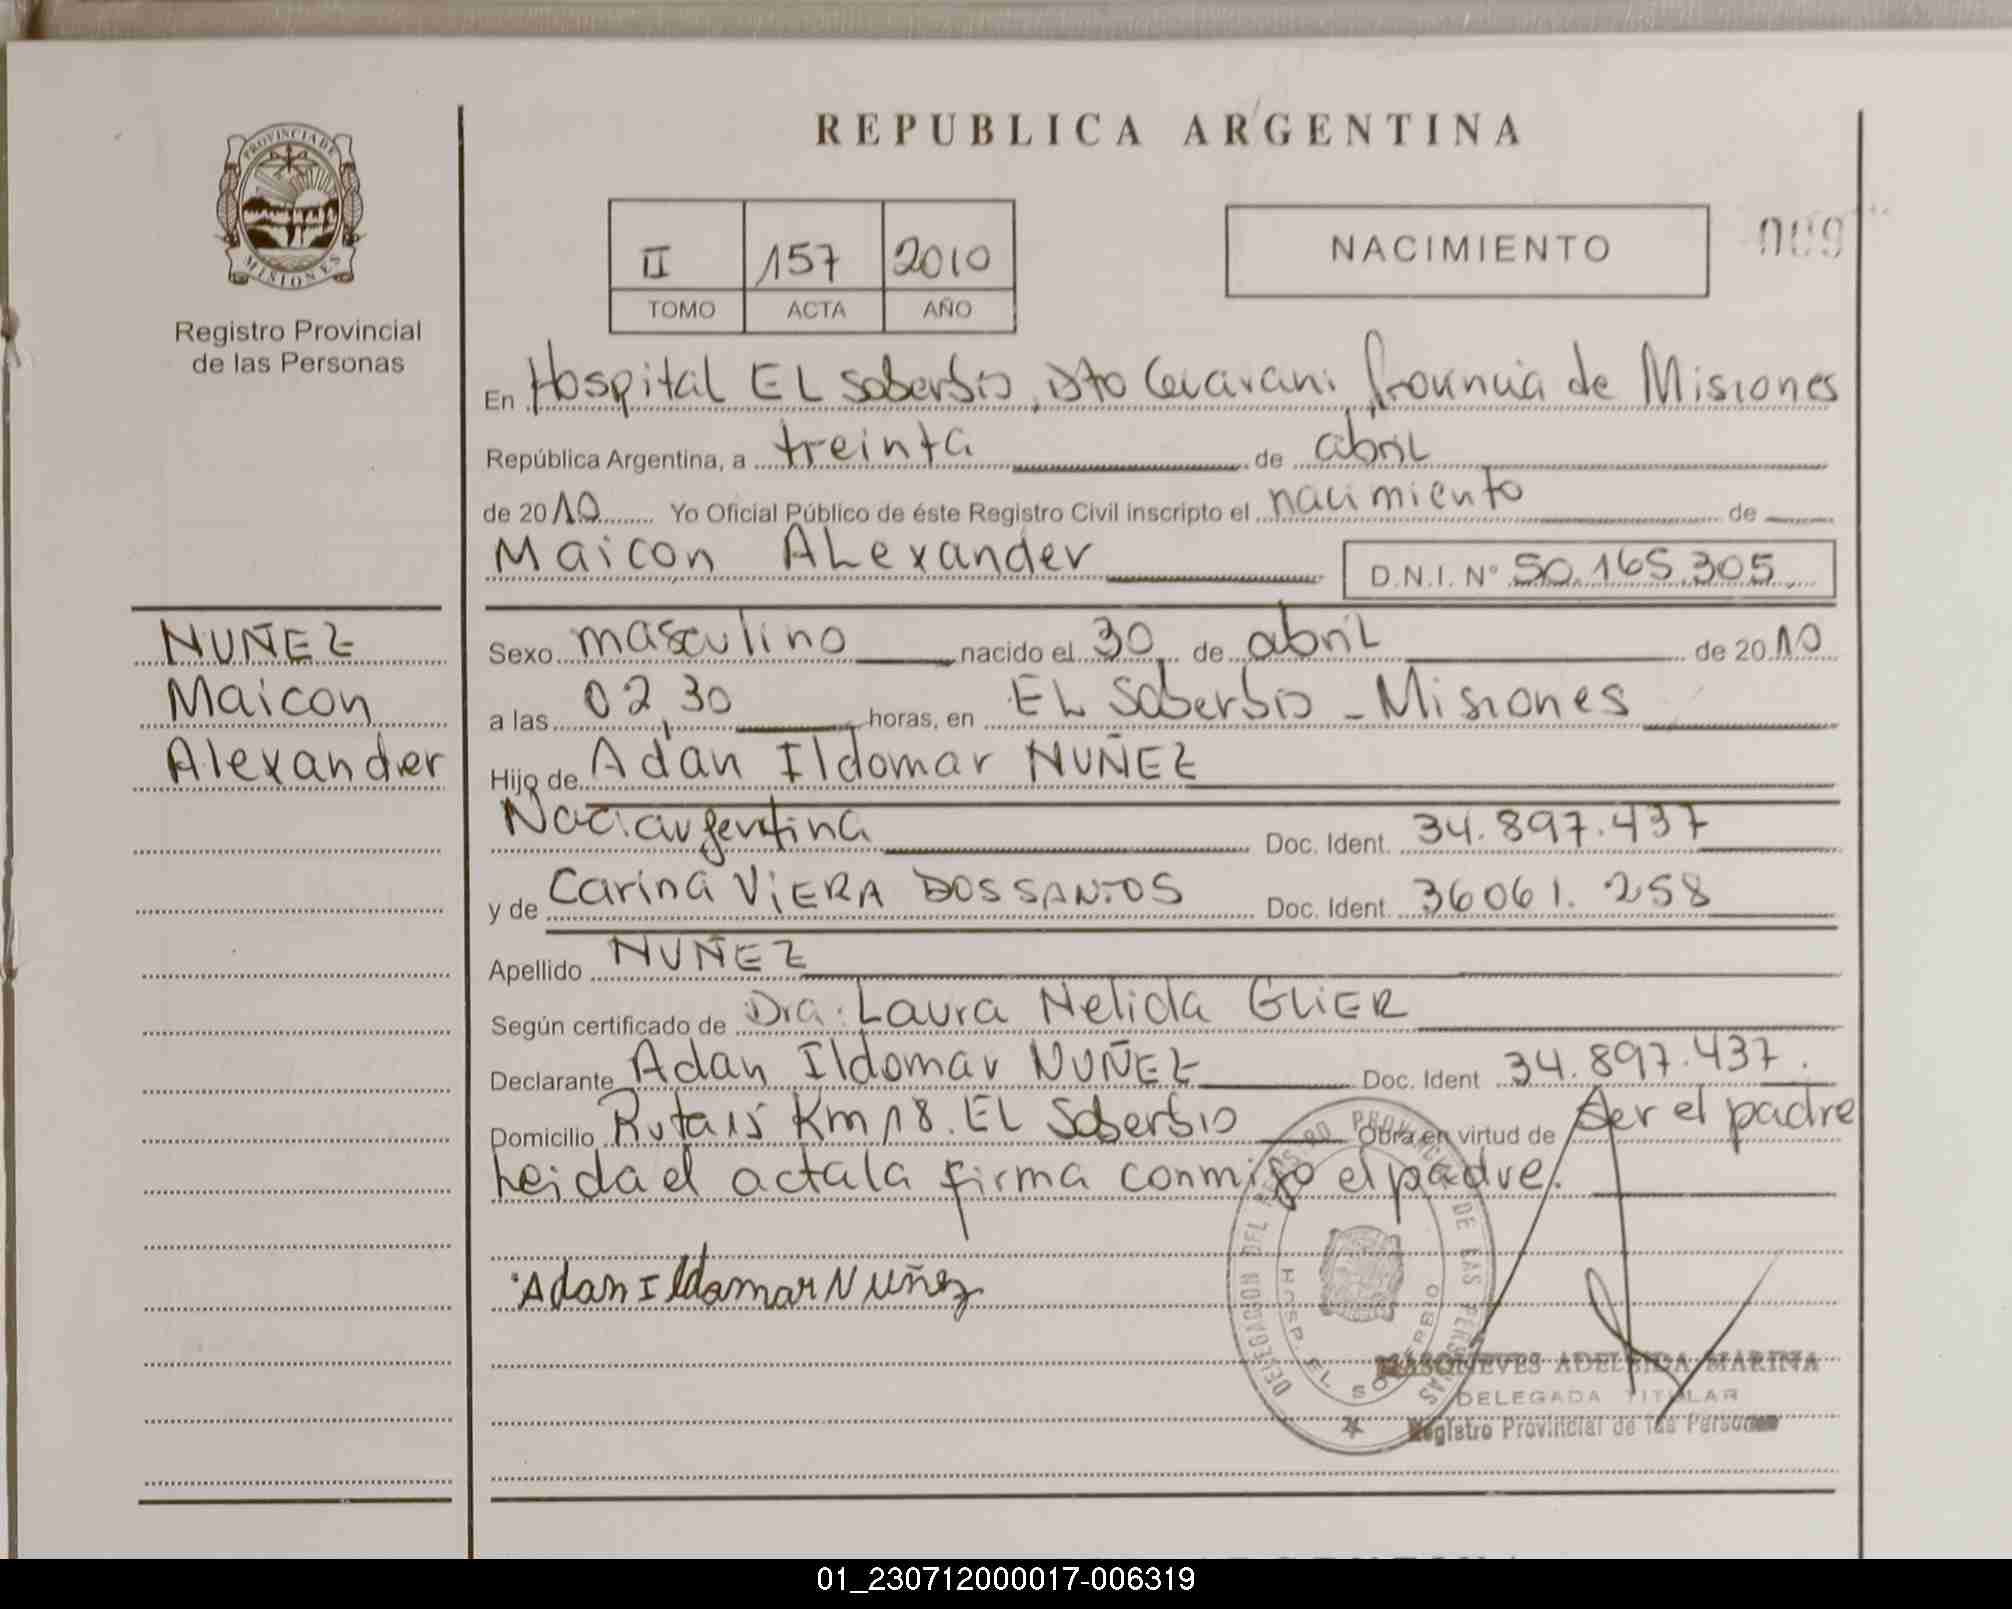 REPUBLICA ARGENTINA
PROVINCIA DE
MISIONES
Registro Provincial
de las Personas
II 157 2010
TOMO ACTA AÑO
NACIMIENTO
009
En Hospital EL Soberbio, Dto Guarani Provincia de Misiones
República Argentina, a treinta de abril
de 2010 Yo Oficial Público de éste Registro Civil inscripto el nacimiento de
Maicon ALexander D.N.I. Nº 50.165.305
NUÑEZ
Maicon
Alexander
Sexo masculino nacido el 30 de abril de 2010
a las 02,30 horas, en EL Soberbio - Misiones
Hijo de Adan Ildomar NUÑEZ
Nac. argentina Doc. Ident. 34.897.437
y de Carina ViERA DOS SANTOS Doc. Ident. 36061.258
Apellido NUÑEZ
Según certificado de Dra. Laura Nelida GLIER
Declarante Adan Ildomar NUÑEZ Doc. Ident 34.897.437.
Domicilio Ruta 15 Km 18. EL Soberbio Obra en virtud de ser el padre
Leida el acta la firma conmigo el padre.
Adan Ildomar Nuñez
DELEGACION DEL REGISTRO PROVINCIAL DE LAS PERSONAS
HOSP. EL SOBERBIO
ADELEIDA MARINA
DELEGADA TITULAR
Registro Provincial de las Personas
01_230712000017-006319